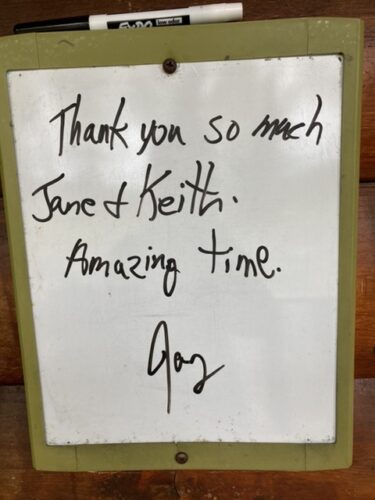 EXPO low odor
Thank you so much
Jane & Keith.
Amazing time.
Jay